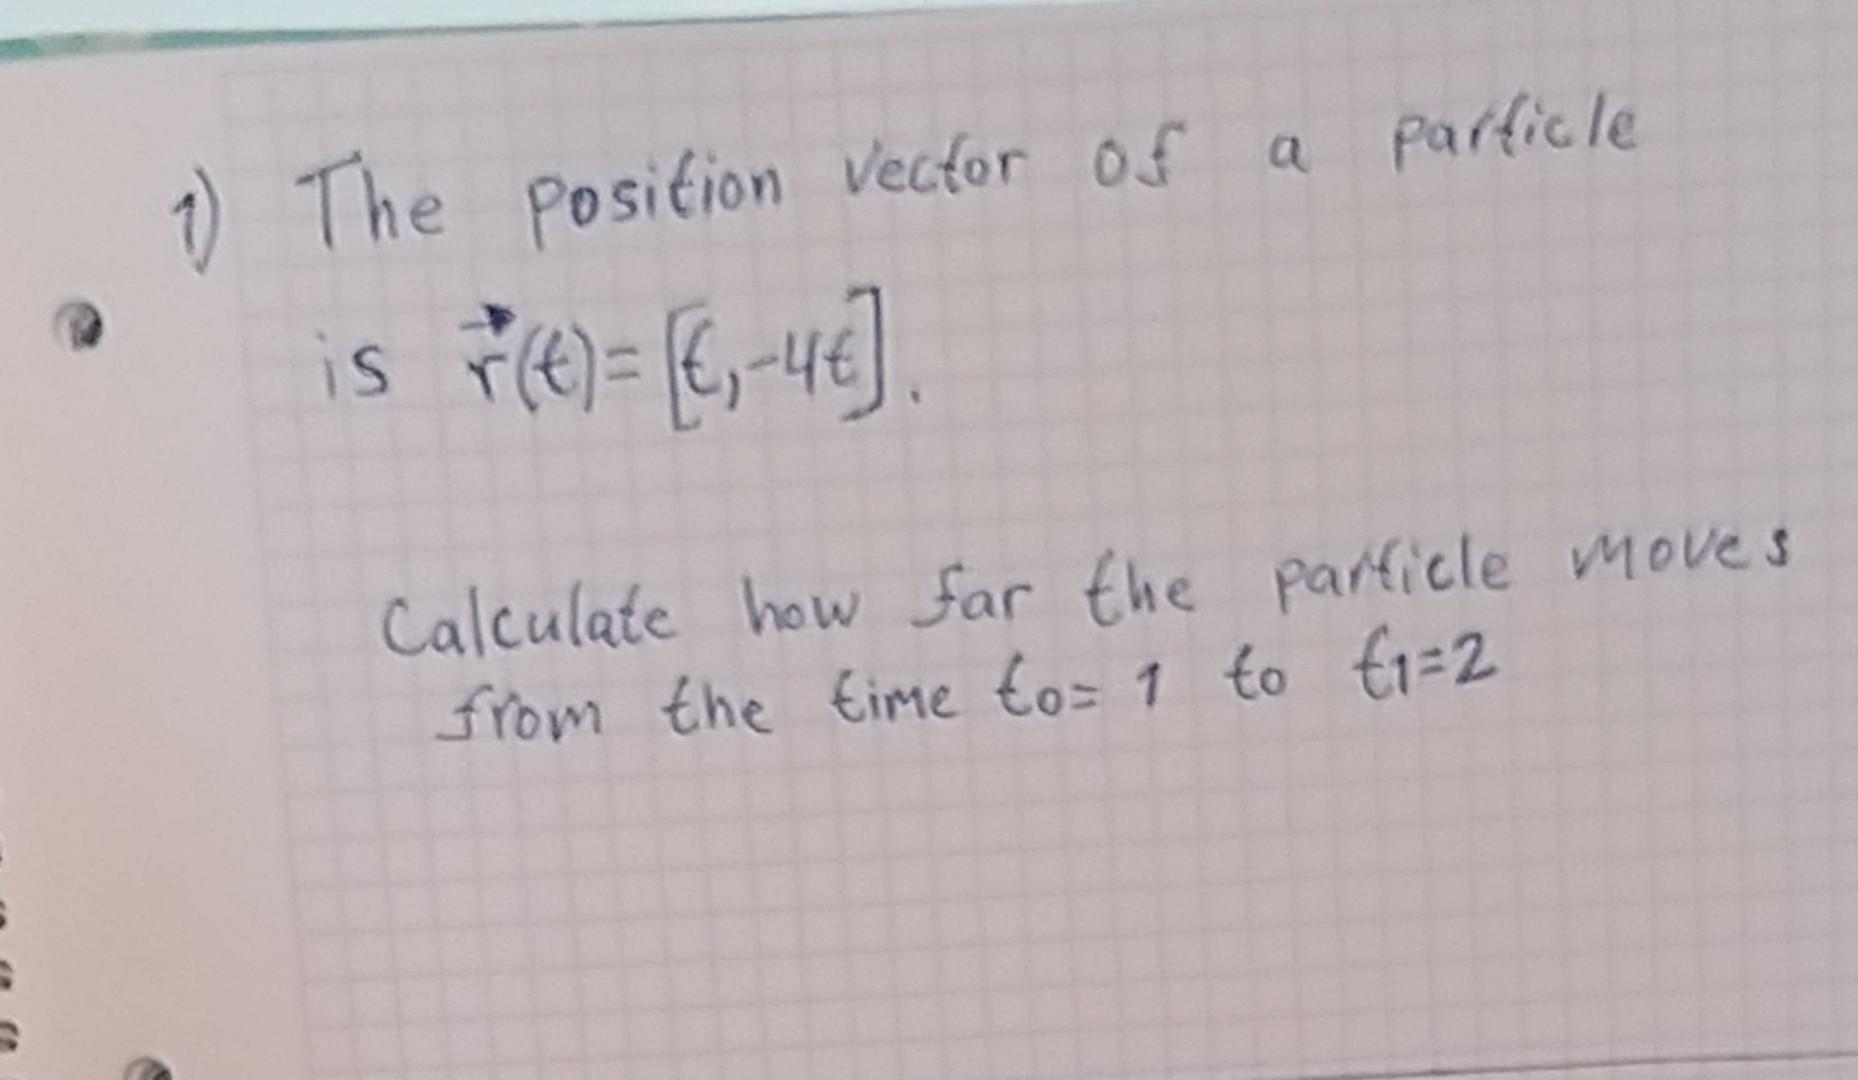 1) The position vector of a particle
is r⃗(t)=[t,-4t].
Calculate how far the particle moves
from the time t0= 1 to t1=2